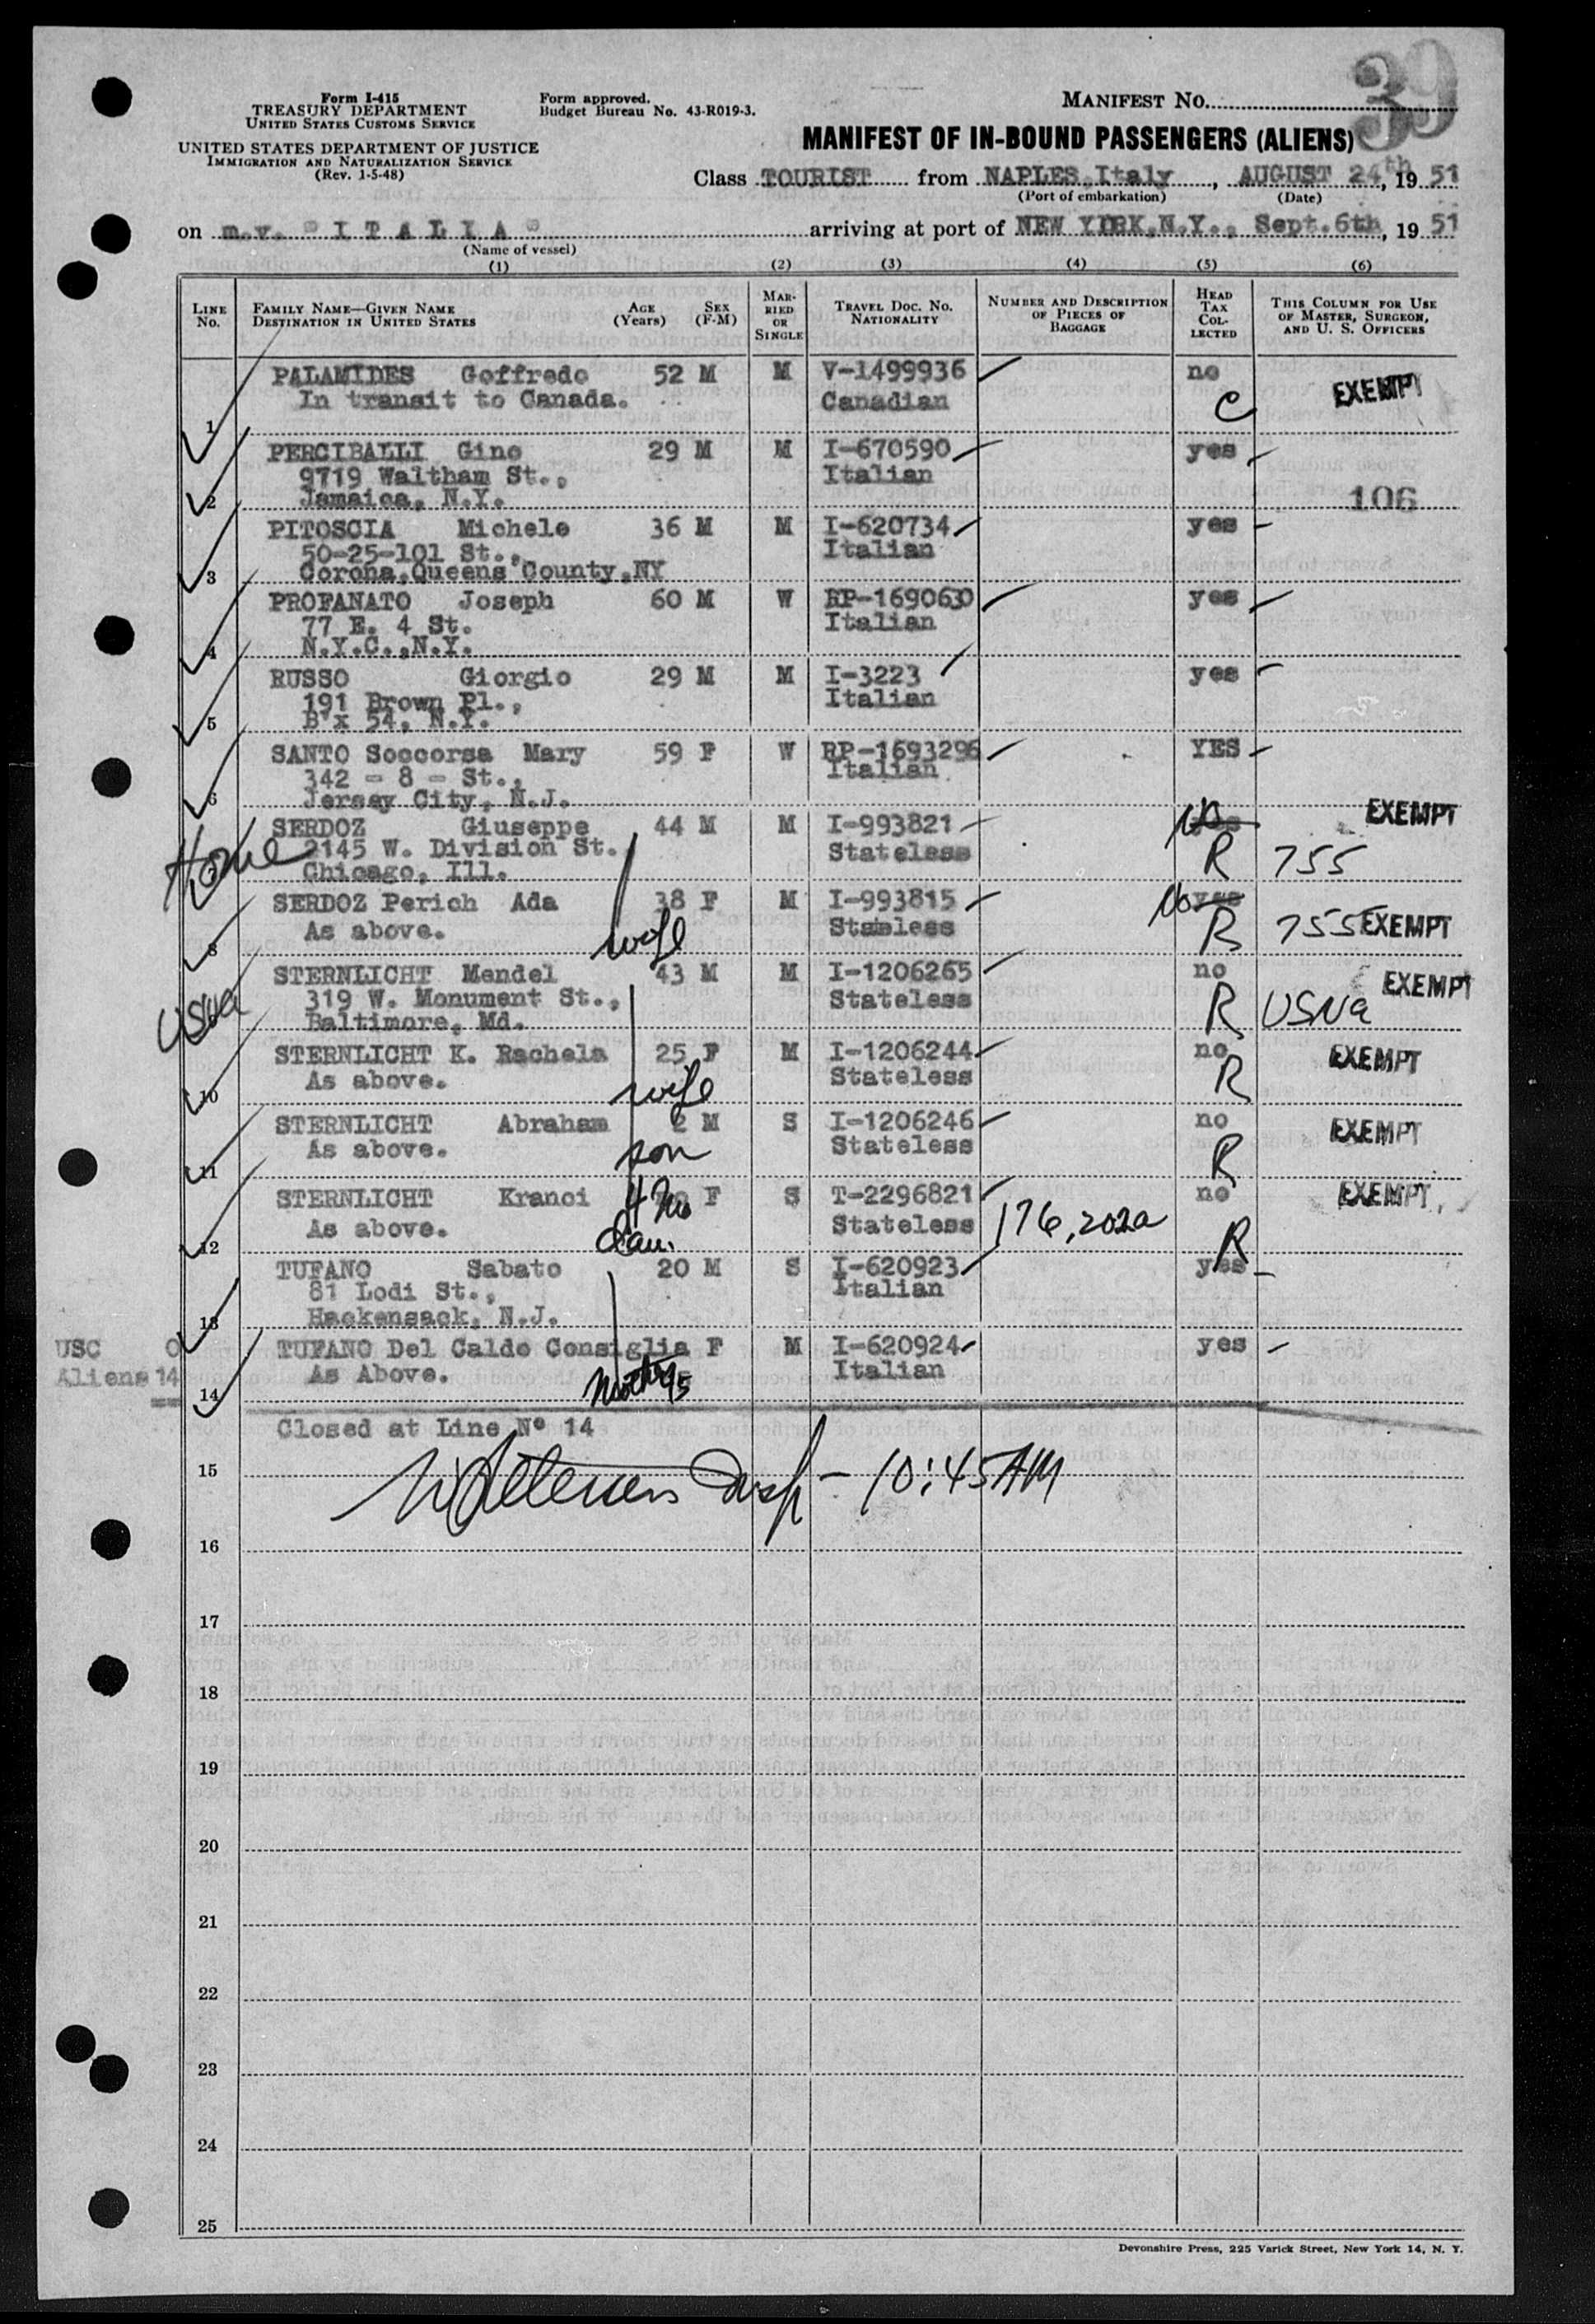 39
Form I-415
TREASURY DEPARTMENT
UNITED STATES CUSTOMS SERVICE
UNITED STATES DEPARTMENT OF JUSTICE
IMMIGRATION AND NATURALIZATION SERVICE
(Rev. 1-5-48)
Form approved.
Budget Bureau No. 43-R019-3.
MANIFEST NO.
MANIFEST OF IN-BOUND PASSENGERS (ALIENS)
Class TOURIST from NAPLES, Italy, AUGUST 24th, 19 51
(Port of embarkation) (Date)
on m.v. "I T A L I A" arriving at port of NEW YORK, N.Y., Sept. 6th, 19 51
(Name of vessel)
(1) (2) (3) (4) (5) (6)
LINE No. FAMILY NAME—GIVEN NAME DESTINATION IN UNITED STATES AGE (Years) SEX (F-M) MARRIED OR SINGLE TRAVEL DOC. NO. NATIONALITY NUMBER AND DESCRIPTION OF PIECES OF BAGGAGE HEAD TAX COLLECTED THIS COLUMN FOR USE OF MASTER, SURGEON, AND U. S. OFFICERS
PALAMIDES Goffredo 52 M M V-1499936 no EXEMPT
In transit to Canada. Canadian C
1
PERCIBALLI Gino 29 M M I-670590 yes
9719 Waltham St., Italian
2 Jamaica, N.Y. 106
PITOSCIA Michele 36 M M I-620734 yes
50-25-101 St., Italian
3 Corona, Queens County, NY
PROFANATO Joseph 60 M W RP-1690630 yes
77 E. 4 St. Italian
4 N.Y.C., N.Y.
RUSSO Giorgio 29 M M I-3223 yes
191 Brown Pl., Italian
5 B'x 54, N.Y.
SANTO Soccorsa Mary 59 F W RP-1693296 YES
342 - 8 - St., Italian
6 Jersey City, N.J.
SERDOZ Giuseppe 44 M M I-993821 No EXEMPT
2145 W. Division St. Stateless R 755
Chicago, Ill.
SERDOZ Perich Ada 38 F M I-993815 No yes
As above. wife Stateless R 755 EXEMPT
8
STERNLICHT Mendel 43 M M I-1206265 no EXEMPT
USNa 319 W. Monument St., Stateless R USNa
Baltimore, Md.
STERNLICHT K. Rachela 25 F M I-1206244 no EXEMPT
As above. wife Stateless R
10
STERNLICHT Abraham 2 M S I-1206246 no EXEMPT
As above. son Stateless R
11
STERNLICHT Kranci F S T-2296821 no EXEMPT
As above. dau. Stateless 176,202a R
12
TUFANO Sabato 20 M S I-620923 yes
81 Lodi St., Italian
13 Hackensack, N.J.
USC 0 TUFANO Del Caldo Consiglia F M I-620924 yes
Aliens 14 As Above. mother 45 Italian
14
Closed at Line Nº 14
15 Insp - 10:45 AM
16
17
18
19
20
21
22
23
24
25
Devonshire Press, 225 Varick Street, New York 14, N. Y.